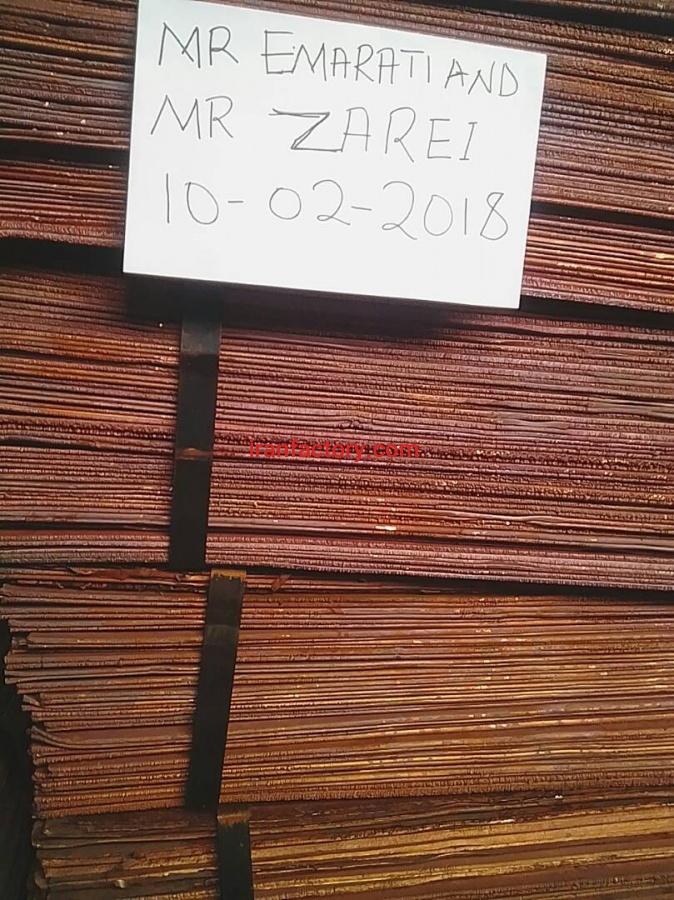 MR EMARATI AND
MR ZAREI
10-02-2018
iranfactory.com